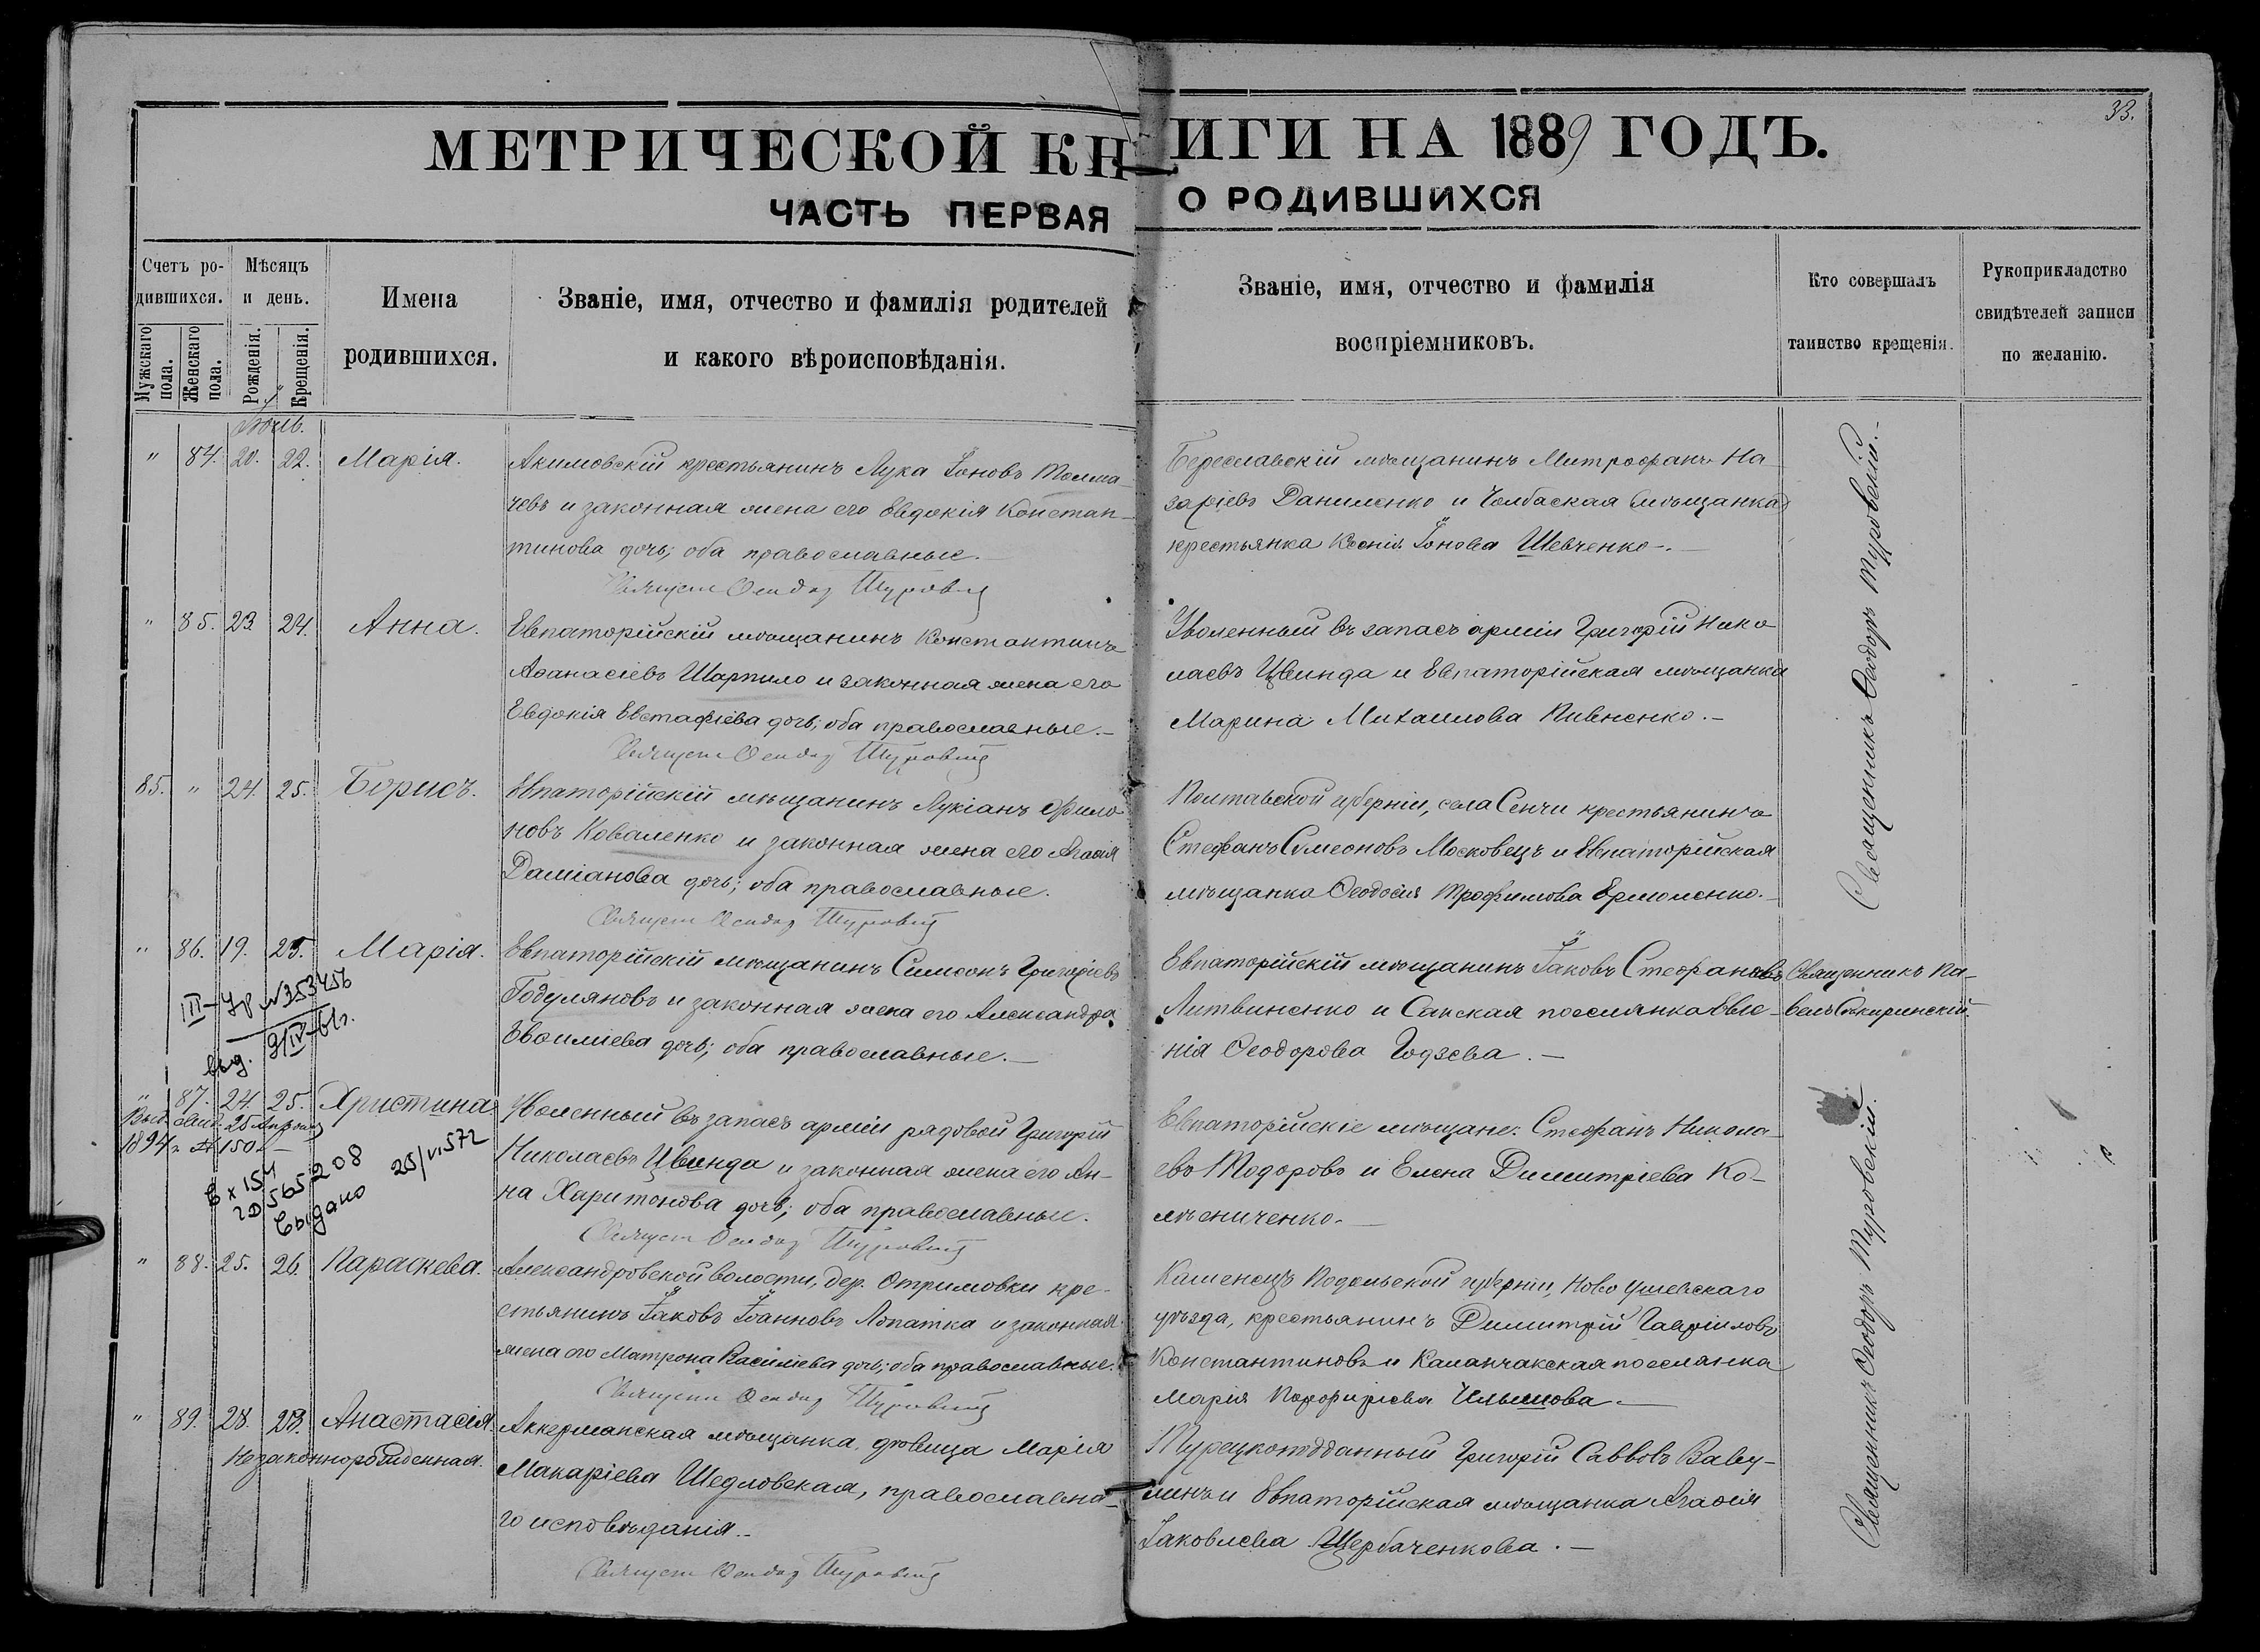 33.
МЕТРИЧЕСКОЙ КНИГИ НА 1889 ГОДЪ.
ЧАСТЬ ПЕРВАЯ О РОДИВШИХСЯ
Счетъ ро-
дившихся.
Мужскаго пола.
Женскаго пола.
Мѣсяцъ
и день.
Рожденія.
Крещенія.
Имена
родившихся.
Званіе, имя, отчество и фамилія родителей
и какого вѣроисповѣданія.
Званіе, имя, отчество и фамилія
воспріемниковъ.
Кто совершалъ
таинство крещенія.
Рукоприкладство
свидѣтелей записи
по желанію.
" 84. 20. 22. Марія.
Акимовскій крестьянинъ Лука Іоновъ Толма-
чевъ и законная жена его Евдокія Констан-
тинова дочь; оба православные.
Береславскій мѣщанинъ Митрофанъ На-
заріевъ Даниленко и Чолбаская (мѣщанка)
крестьянка Ксенія Іонова Шевченко.
Священникъ Ѳеодоръ Туровскій.
" 85. 23. 24. Анна.
Евпаторійскій мѣщанинъ Константинъ
Аѳанасіевъ Шарпило и законная жена его
Евдокія Евстафіева дочь; оба православные.
Уволенный въ запасъ арміи Григорій Нико-
лаевъ Цвинда и Евпаторійская мѣщанка
Марина Михаилова Пивненко.
85. " 24. 25. Борисъ.
Евпаторійскій мѣщанинъ Лукіанъ Фило-
новъ Коваленко и законная жена его Агаѳія
Даміанова дочь; оба православные.
Полтавской губерніи, села Сенчи крестьянинъ
Стефанъ Симеоновъ Московецъ и Евпаторійская
мѣщанка Ѳеодосія Трофимова Ермоленко.
" 86. 19. 25. Марія.
III-Ур №353456
выд.
Евпаторійскій мѣщанинъ Симеонъ Григоріевъ
Годуляновъ и законная жена его Александра
Евѳиміева дочь; оба православные.
Евпаторійскій мѣщанинъ Іаковъ Стефановъ
Литвиненко и Сакская поселянка Евге-
нія Ѳеодорова Годзева.
Священникъ Па-
велъ Сѣкиринскій.
" 87. 24. 25. Христина.
1894 г. № 150.
565208
выдано
Уволенный въ запасъ арміи рядовой Григорій
Николаевъ Цвинда и законная жена его Ан-
на Харитонова дочь; оба православные.
Евпаторійскіе мѣщане: Стефанъ Никола-
евъ Тодоровъ и Елена Димитріева Ко-
лѣсниченко.
Священникъ Ѳеодоръ Туровскій.
" 88. 25. 26. Параскева.
Александровской волости, дер. Отримовки кре-
стьянинъ Іаковъ Іоанновъ Лопатка и законная
жена его Матрона Василіева дочь; оба православные.
Каменецъ Подольской губерніи, Ново Ушевскаго
уѣзда, крестьянинъ Димитрій Гавріиловъ
Константиновъ и Каланчакская поселянка
Марія Порфиріева
" 89. 28. 28. Анастасія
Незаконнорожденная.
Аккерманская мѣщанка, дѣвица Марія
Макаріева Шедловская, православна-
го исповѣданія.
Турецкоподданный Григорій СаввовъВаву-
линъ и Евпаторійская мѣщанка Агаѳія
Іаковлева Щербаченкова.